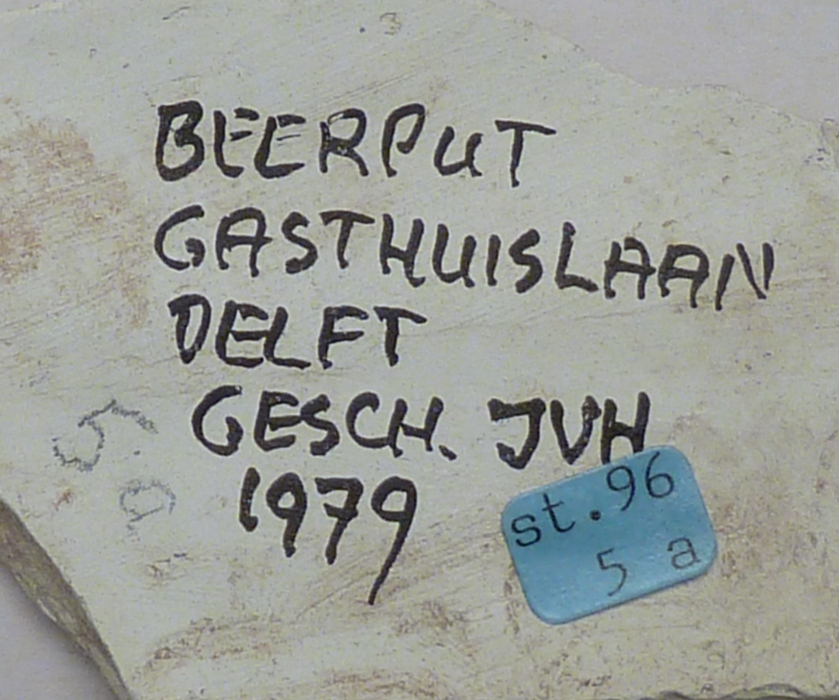 BEERPUT
GASTHUISLAAN
DELFT
GESCH. JVH
1979
5.a
st.96
5 a